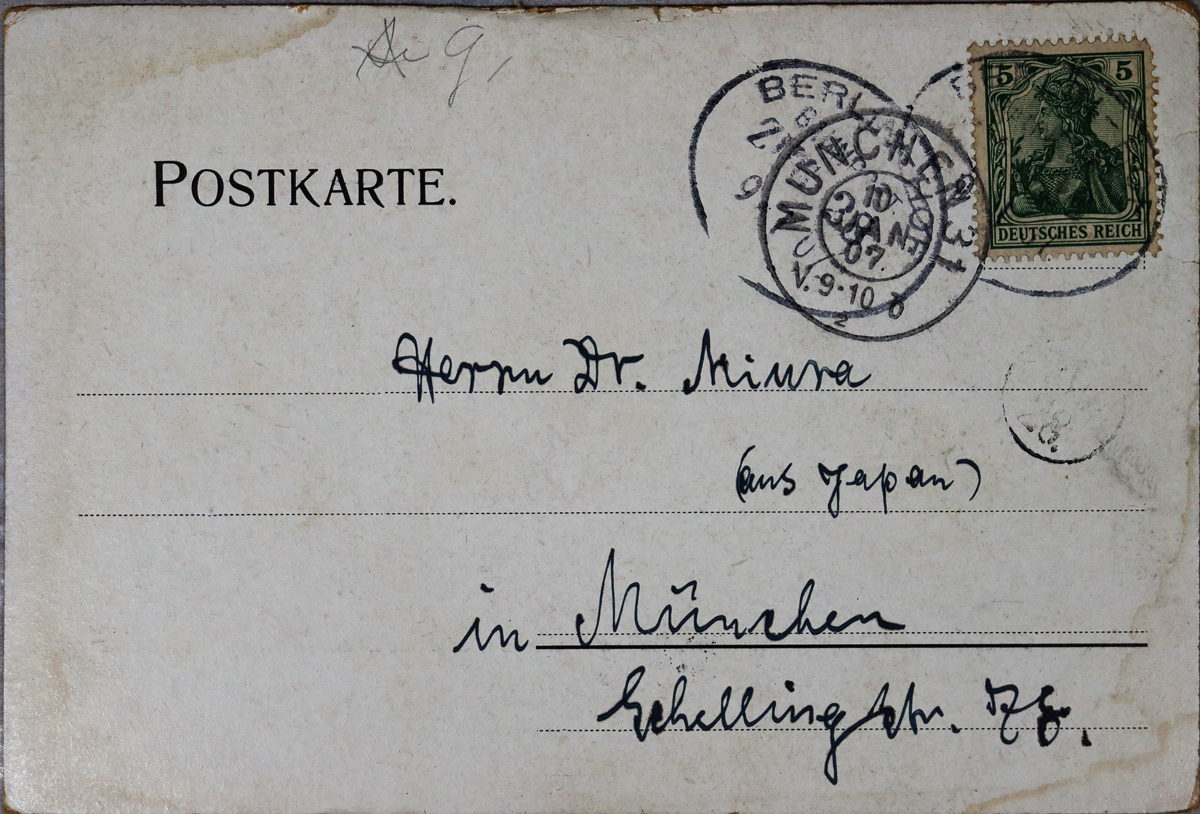 9,
POSTKARTE.
5 5
DEUTSCHES REICH
BERLIN
MÜNCHEN 31
10
JAN
07.
V. 9-10
Herrn Dr. Miura
(aus Japan)
in München
Schellingstr.